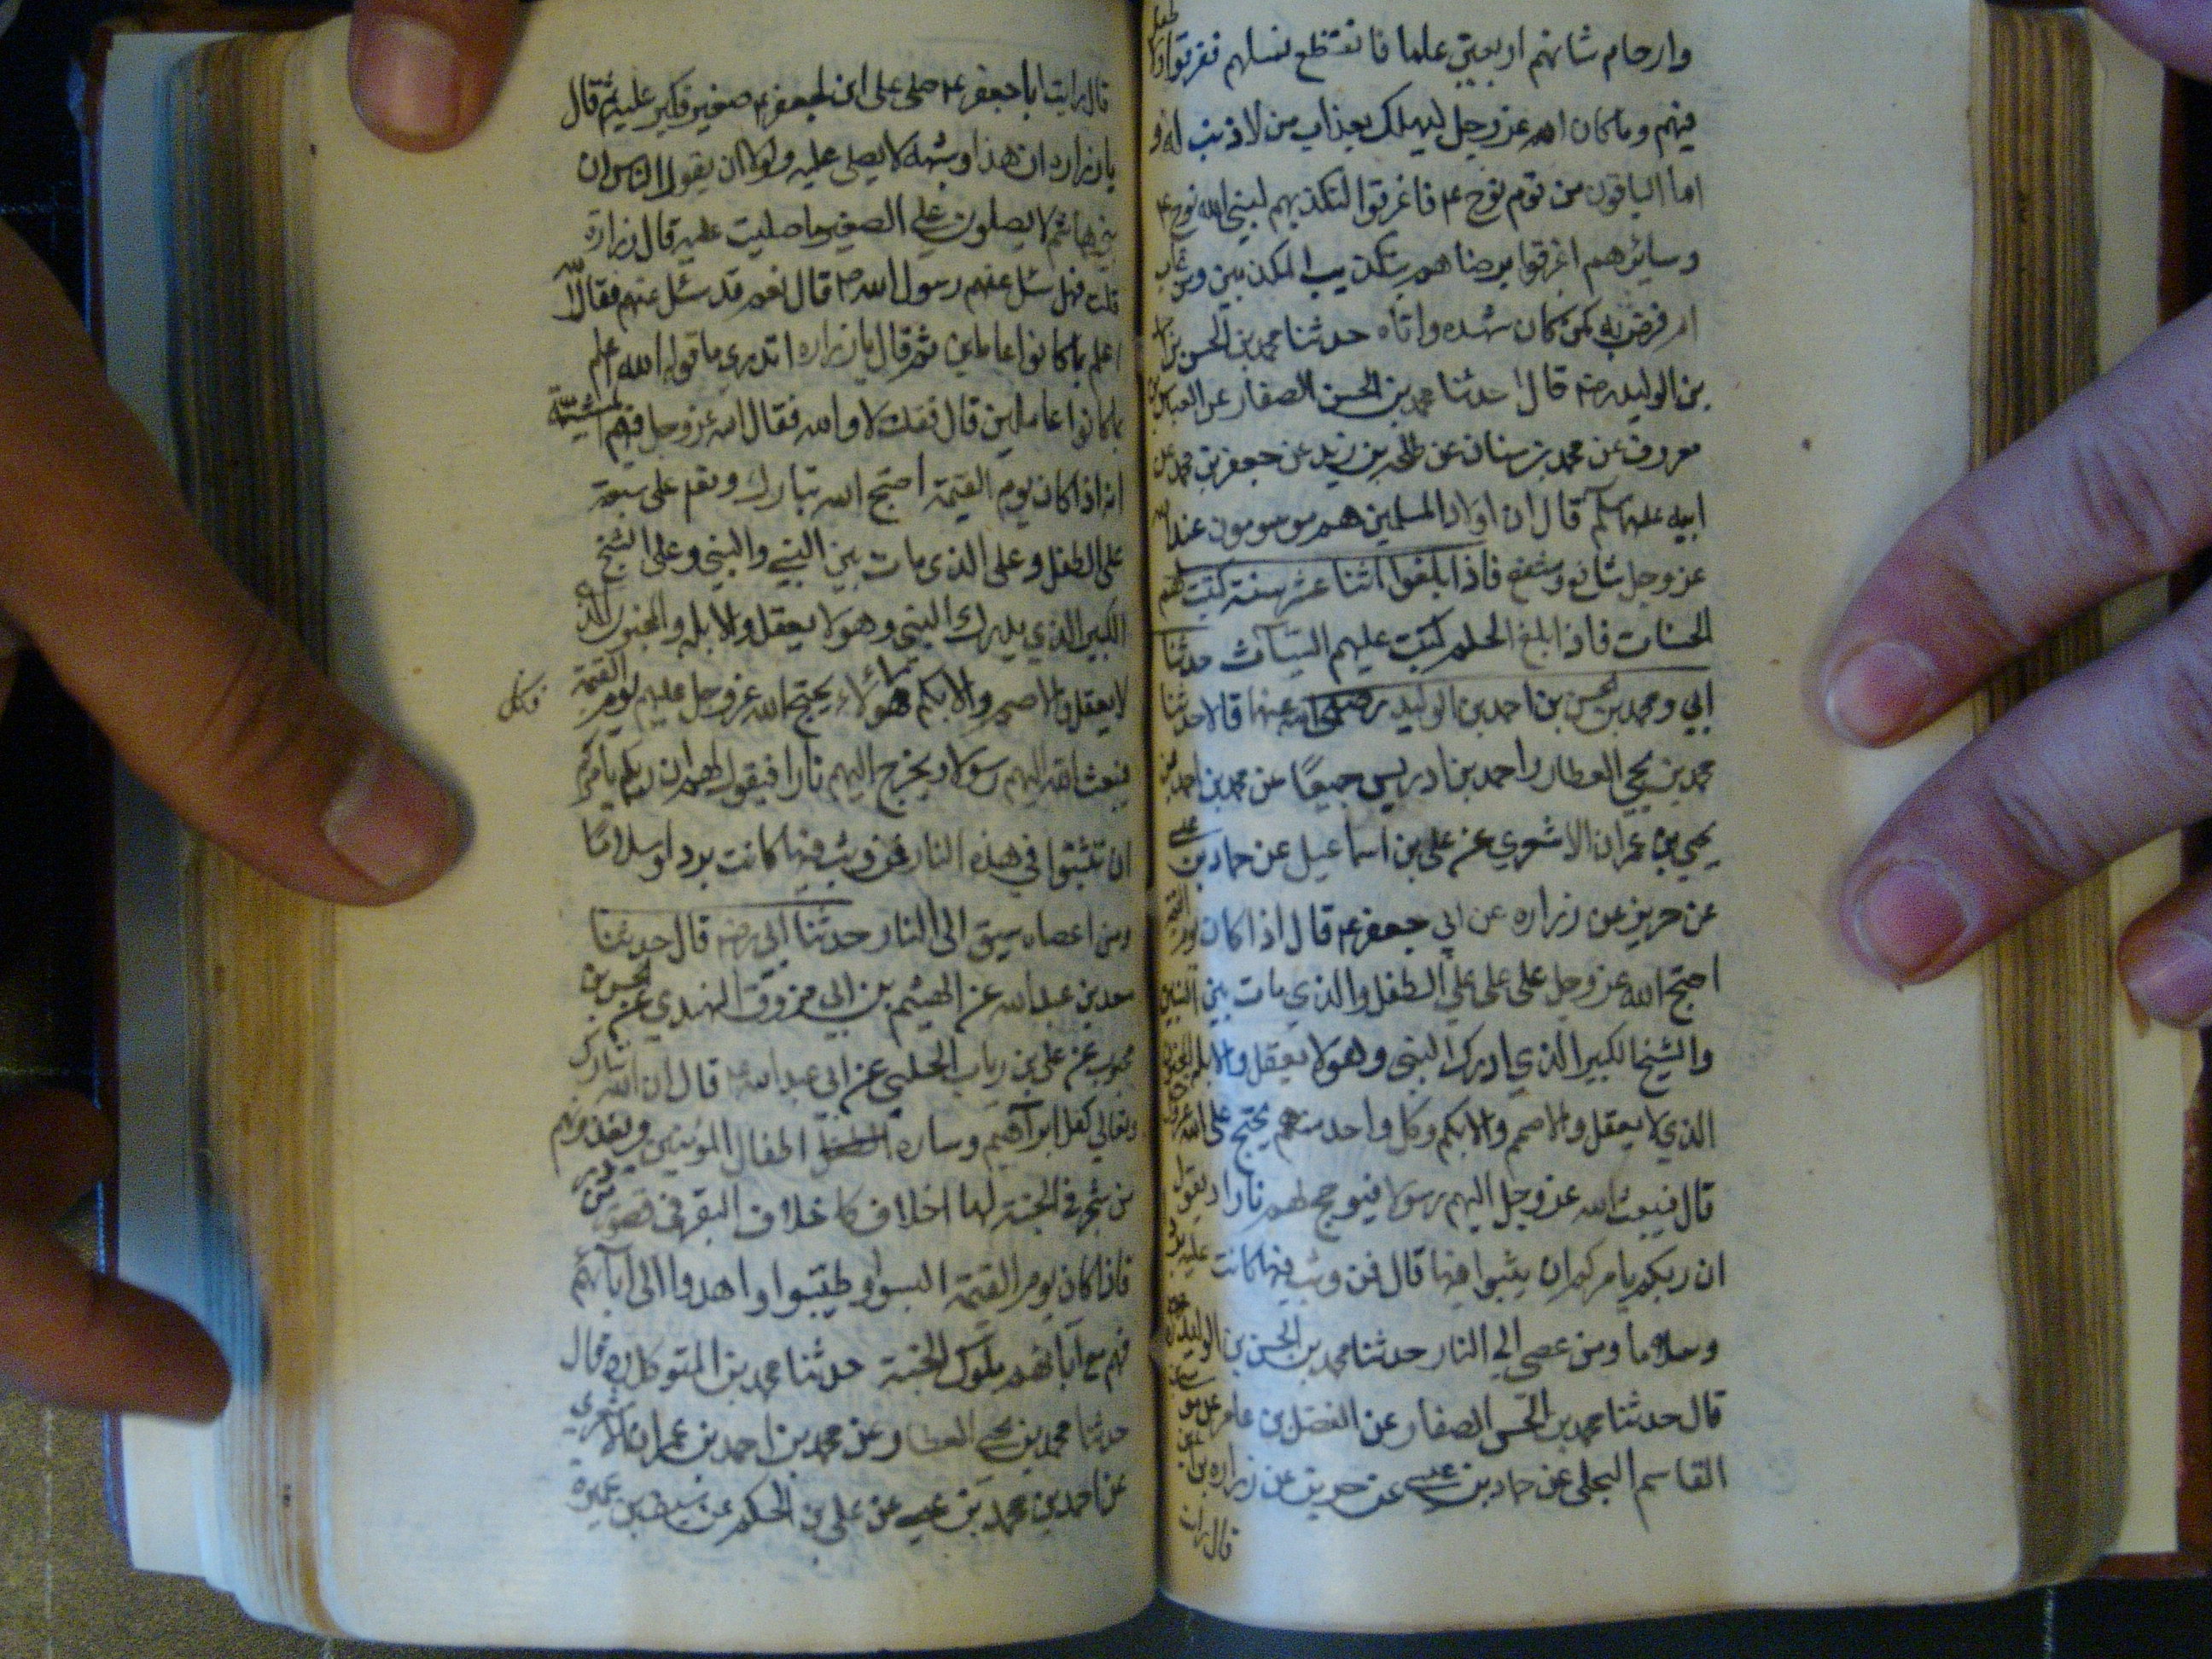 وارحام نسائهم اربعين عاما فانقطع نسلهم فغرقوا ولا طفل
فيهم وما كان الله عز وجل ليهلك بعذابه من لا ذنب له و
اما الباقون من قوم نوح ع فاغرقوا لتكذيبهم لنبي الله نوح ع
وسائرهم اغرقوا برضاهم بتكذيب المكذبين ومن غاب
امر فرضى به كمن كان شهده واتاه حدثنا محمد بن الحسن بن احمد
بن الوليد رضه قال حدثنا محمد بن الحسن الصفار عن العباس بن
معروف عن محمد بن سنان عن طلحه بن زيد عن جعفر بن محمد عن
ابيه عليهما السلم قال ان اولاد المسلمين هم موسومون عند الله
عز وجل شافع ومشفع فاذا بلغوا اثنا عشر سنة كتبت لهم
الحسنات فاذا بلغ الحلم كتبت عليهم السيئات حدثنا
ابي ومحمد بن الحسن بن احمد بن الوليد رضى الله عنهما قالا حدثنا
محمد بن يحيى العطار واحمد بن ادريس جميعا عن محمد بن احمد بن
يحيى بن عمران الاشعري عن على بن اسماعيل عن حماد بن عيسى
عن حريز عن زراره عن ابي جعفر ع قال اذا كان يوم القيمة
احتج الله عز وجل على على على الطفل والذي مات بين النبيين
والشيخ الكبير الذي ادرك النبى وهو لا يعقل والابله والمجنون
الذي لا يعقل والاصم والابكم وكل واحد منهم يحتج على الله عز وجل
قال فيبعث الله عز وجل اليهم رسولا فيوجج لهم نارا ويقول
ان ربكم يامركم ان يثبوا فيها قال فمن وثب فيها كانت عليه بردا
وسلاما ومن عصى سيق الى النار حدثنا محمد بن الحسن بن الوليد رضه
قال حدثنا محمد بن الحسن الصفار عن الفضل بن عامر عن موسى بن
القاسم البجلى عن حماد بن عيسى عن حريز عن زراره بن اعين
قال رايت
قال رايت ابا جعفر ع صلى على ابن لجعفر ع صغير فكبر عليه ثم قال
يا زراره ان هذا وشبهه لا يصلى عليه ولولا ان يقول الناس ان
بني هاشم لا يصلون على الصغير ما صليت عليه قال زرارة
قلت فهل سئل عنهم رسول الله ص قال نعم قد سئل عنهم فقال الله
اعلم بما كانوا عاملين ثم قال يا زراره اتدري ما قوله الله اعلم
بما كانوا عاملين قال فقلت لا والله فقال لله عز وجل فيهم المشية
انه اذا كان يوم القيمة احتج الله تبارك وتعلى على سبعة
على الطفل وعلى الذى مات بين النبي والنبي وعلى الشيخ
الكبير الذي يدرك النبى وهو لا يعقل والابله والمجنون الذي
لا يعقل والاصم والابكم فكل هؤلاء يحتج الله عز وجل عليهم يوم القيمة
فيبعث الله اليهم رسولا ويخرج اليهم نارا فيقول لهم ان ربكم يامركم
ان تثبتوا في هذه النار فمن وثب فيها كانت بردا وسلاما
ومن اعصاه سيق الى النار حدثنا ابى رضه قال حدثنا
سعد بن عبد الله عن الهيثم بن ابى مزوق النهدي عن الحسن بن
محبوب عن على بن رياب الحلبى عن ابى عبد الله ع قال ان الله تبارك
وتعالى كفل ابراهيم وساره اطفال المؤمنين ويغذونهم
من شجر في الجنة لها اخلاف كاخلاف البقر في قصور من در
فاذا كان يوم القيمة البسوا وطيبوا واهدوا الى ابائهم
فهم مع ابائهم ملوك الجنة حدثنا محمد بن المتوكل ره قال
حدثنا محمد بن يحيى العطار عن محمد بن احمد بن عمران الاشعري
عن احمد بن محمد بن عيسى عن على بن الحكم عن سيف بن عميره